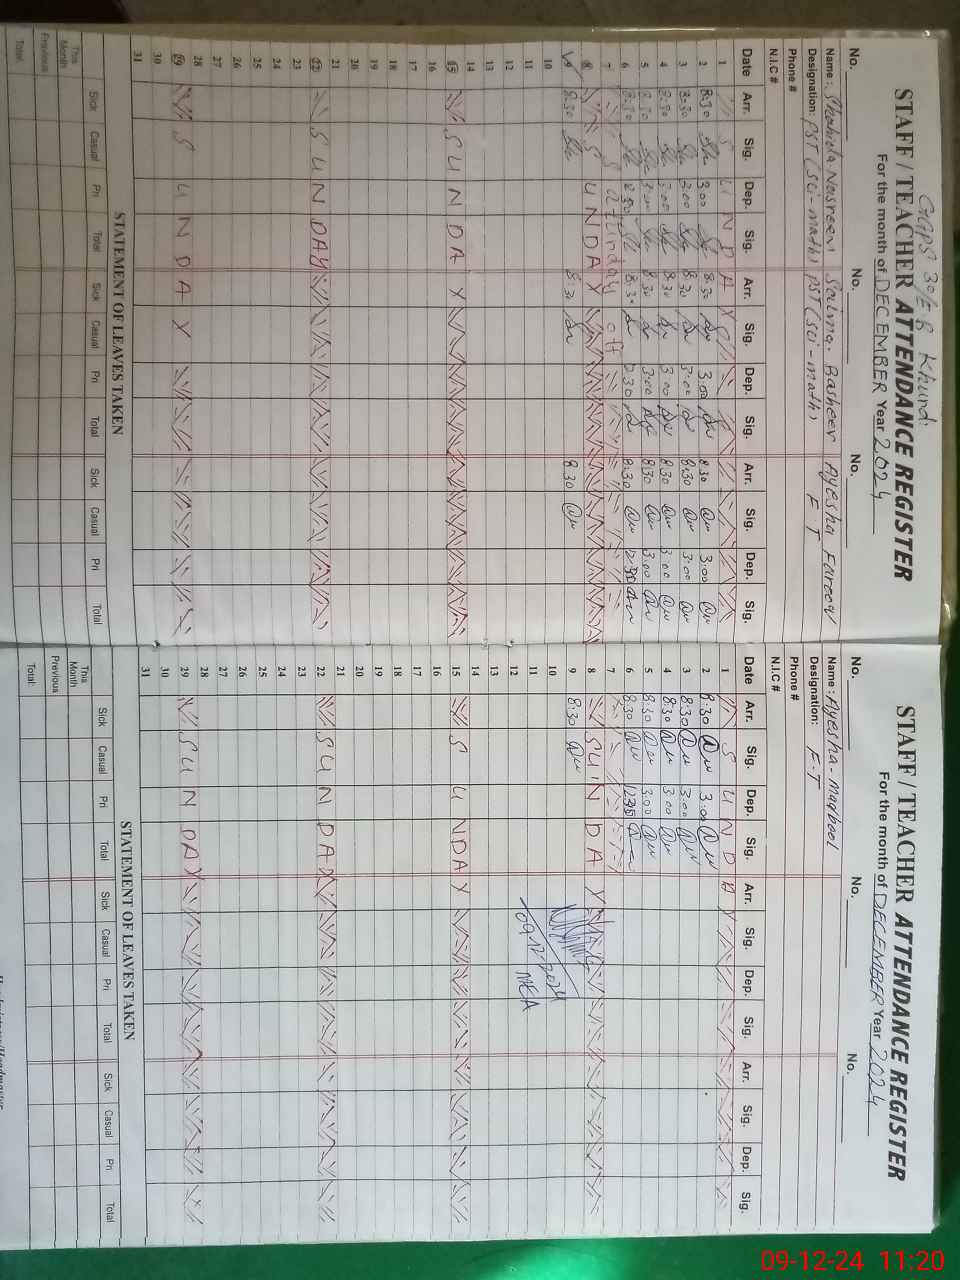 GGPS 30/EB Khurd:
STAFF / TEACHER ATTENDANCE REGISTER
For the month of DECEMBER Year 2024
No. No. No.
Name: Shahida Nasreen Salma Basheer Ayesha Farooq
Designation: PST (Sci-math) PST (Sci-math) F.T
Phone #
N.I.C #
Date Arr. Sig. Dep. Sig. Arr. Sig. Dep. Sig. Arr. Sig. Dep. Sig.
1 SUNDAY
2 8:30 3:00 8:30 3:00 8:30 3:00
3 8:30 3:00 8:30 3:00 8:30 3:00
4 8:30 3:00 8:30 3:00 8:30 3:00
5 8:30 3:00 8:30 3:00 8:30 3:00
6 8:30 8:30 8:30 12:30
7 off
8 SUNDAY
9 8:30 8:30 8:30
10
11
12
13
14
15 SUNDAY
16
17
18
19
20
21
22 SUNDAY
23
24
25
26
27
28
29 SUNDAY
30
31
STATEMENT OF LEAVES TAKEN
Sick Casual Pri Total Sick Casual Pri Total Sick Casual Pri Total
This Month
Previous
Total:
STAFF / TEACHER ATTENDANCE REGISTER
For the month of DECEMBER Year 2024
No. No. No.
Name: Ayesha-Maqbool
Designation: F.T
Phone #
N.I.C #
Date Arr. Sig. Dep. Sig. Arr. Sig. Dep. Sig. Arr. Sig. Dep. Sig.
1 SUNDAY
2 8:30 3:00
3 8:30 3:00
4 8:30 3:00
5 8:30 3:00
6 8:30 12:30
7
8 SUNDAY
9 8:30
10
11 09-12-2024
12 MEA
13
14
15 SUNDAY
16
17
18
19
20
21
22 SUNDAY
23
24
25
26
27
28
29 SUNDAY
30
31
STATEMENT OF LEAVES TAKEN
Sick Casual Pri Total Sick Casual Pri Total Sick Casual Pri Total
This Month
Previous
Total:
09-12-24 11:20